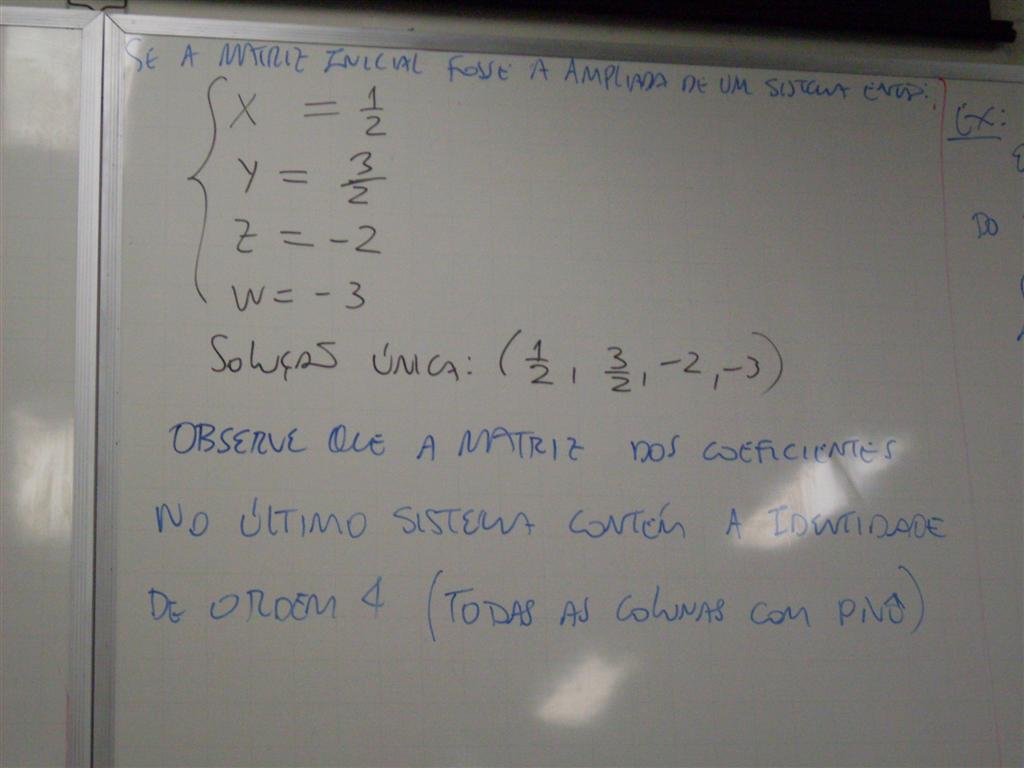 SE A MATRIZ INICIAL FOSSE A AMPLIADA DE UM SISTEMA ENTÃO:
X = 1/2
Y = 3/2
Z = -2
W = -3
SOLUÇÃO ÚNICA: (1/2, 3/2, -2, -3)
OBSERVE QUE A MATRIZ DOS COEFICIENTES
NO ÚLTIMO SISTEMA CONTÉM A IDENTIDADE
DE ORDEM 4 (TODAS AS COLUNAS COM PIVÔ)
EX:
DO